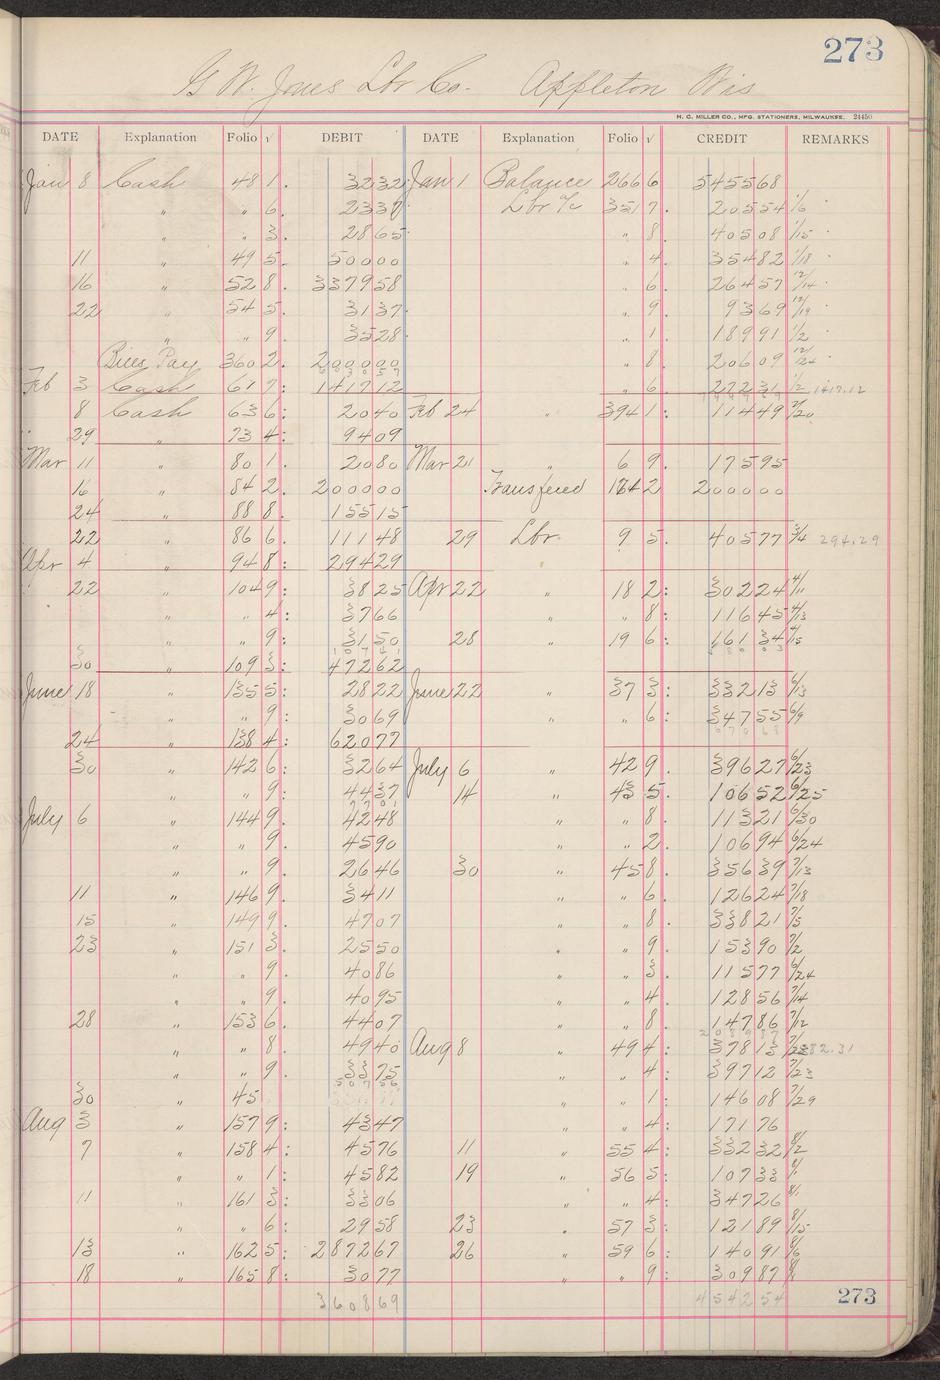 273
G W. Jones Lbr Co. Appleton Wis
H. C. MILLER CO., MFG. STATIONERS, MILWAUKEE. 24450
DATE Explanation Folio √ DEBIT DATE Explanation Folio √ CREDIT REMARKS
Jan 8 Cash 48 1. 3232 Jan 1 Balance 266 6 545568
" " 6. 2337 Lbr 351 7. 20554 1/6
" " 3. 2865 " 8. 40508 1/15
11 " 49 5. 50000 " 4. 35482 1/18
16 " 52 8. 337958 " 6. 26457 12/14
22 " 54 5. 3137 " 9. 9369 12/19
" " 9. 3528 " 1. 18991 1/2
Bills Pay 360 2. 200000 " 8. 20609 12/24
Feb 3 Cash 61 7: 141712 " 6. 27231 1/2 1417.12
8 Cash 63 6: 2040 Feb 24 " 394 1: 11449 2/20
29 " 73 4: 9409
Mar 11 " 80 1. 2080 Mar 21 " 6 9. 17595
16 " 84 2. 200000 Transfered 164 2 200000
24 " 88 8. 15515
22 " 86 6. 11148 29 Lbr 9 5. 40577 3/4 294.29
Apr 4 " 94 8: 29429
22 " 104 9: 3825 Apr 22 " 18 2: 30224 4/11
" " 4: 3766 " " 8: 11645 4/13
" " 9: 3150 28 " 19 6: 16134 4/15
30 " 109 3: 47262
June 18 " 135 5: 2822 June 22 " 37 3: 33213 6/13
" " 9: 3069 " " 6: 34755 6/9
24 " 138 4: 62077
30 " 142 6: 3264 July 6 " 42 9. 39627 6/23
" " 9: 4437 14 " 43 5. 10652 6/25
July 6 " 144 9. 4248 " " 8. 11321 6/30
" " 9. 4590 " " 2. 10694 6/24
" " 9. 2646 30 " 45 8. 35639 7/13
11 " 146 9. 3411 " " 6. 12624 7/18
15 " 149 9 4707 " " 8. 33821 7/5
23 " 151 3. 2550 " " 9. 15390 7/2
" " 9. 4086 " " 3. 11577 6/24
" " 9. 4095 " " 4. 12856 7/14
28 " 153 6. 4407 " " 8. 14786 7/12
" " 8. 4940 Aug 8 " 49 4: 37813
" " 9. 3375 " " 4: 39712 7/23
30 " 45 " " 1: 14608 7/29
Aug 3 " 157 9: 4347 " " 4: 17176
7 " 158 4: 4576 11 " 55 4: 33232 8/2
" " 1: 4582 19 " 56 5: 10733
11 " 161 3: 3306 " " 4: 34726
" " 6: 2958 23 " 57 3: 12189 8/15
13 " 162 5: 287267 26 " 59 6: 14091 8/6
18 " 165 8: 3077 " " 9: 30987
360869 454254 273